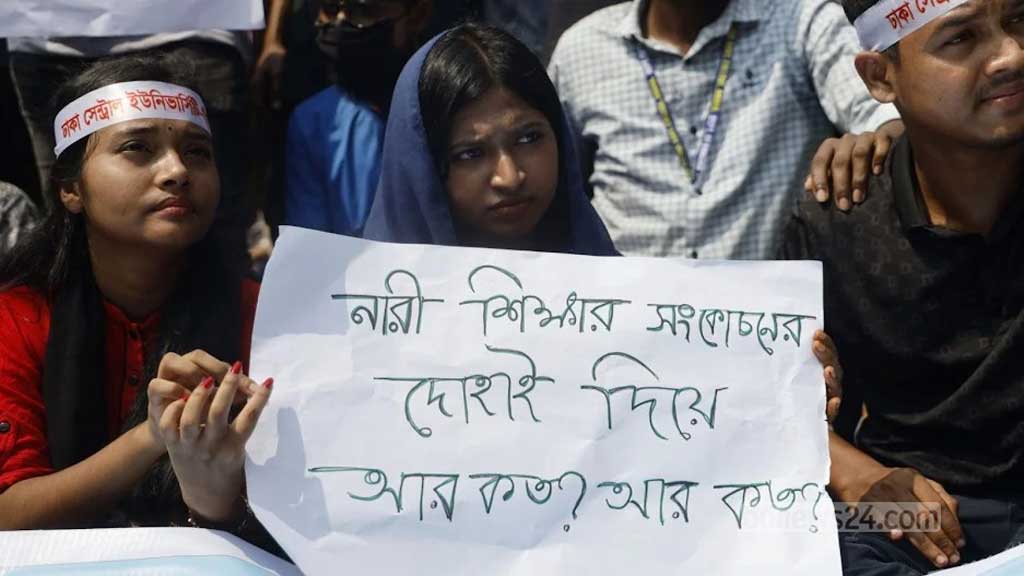 ঢাকা সেন্ট্রাল ইউনিভার্সিটি
ঢাকা সে
নারী শিক্ষার সংকোচনের
দোহাই দিয়ে
আর কত? আর কত?
news24.com